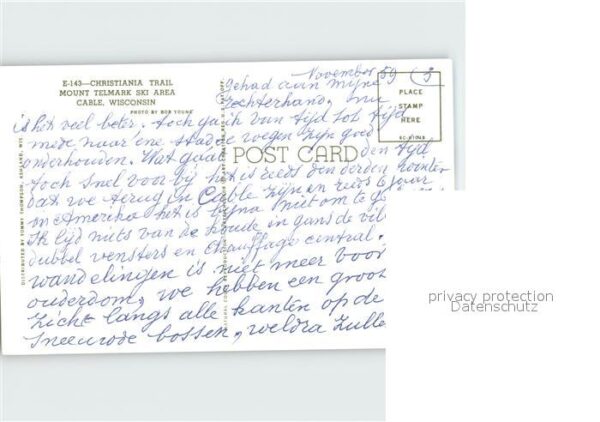 November 59 (3
E-143—CHRISTIANIA TRAIL
MOUNT TELMARK SKI AREA
CABLE, WISCONSIN
PHOTO BY BOB YOUNG
PLACE
STAMP
HERE
POST CARD
DISTRIBUTED BY TOMMY THOMPSON, ASHLAND, WIS.
gehad aan mijne
rechterhand, nu
is het veel beter. Toch ga ik van tijd tot tijd
mede naar stad de wegen zijn goed
onderhouden. Wat gaat den tijd
toch snel voorbij het is reeds den derden winter
dat we terug in Cable zijn en reeds jaar
in Amerika het is bijna niet om te g
Ik lijd niets van de koude in gans de vil
dubbel vensters en chauffage central.
wandelingen is niet meer voor
ouderdom, we hebben een groot
zicht langs alle kanten op de
bossen, weldra zulle
privacy protection
Datenschutz